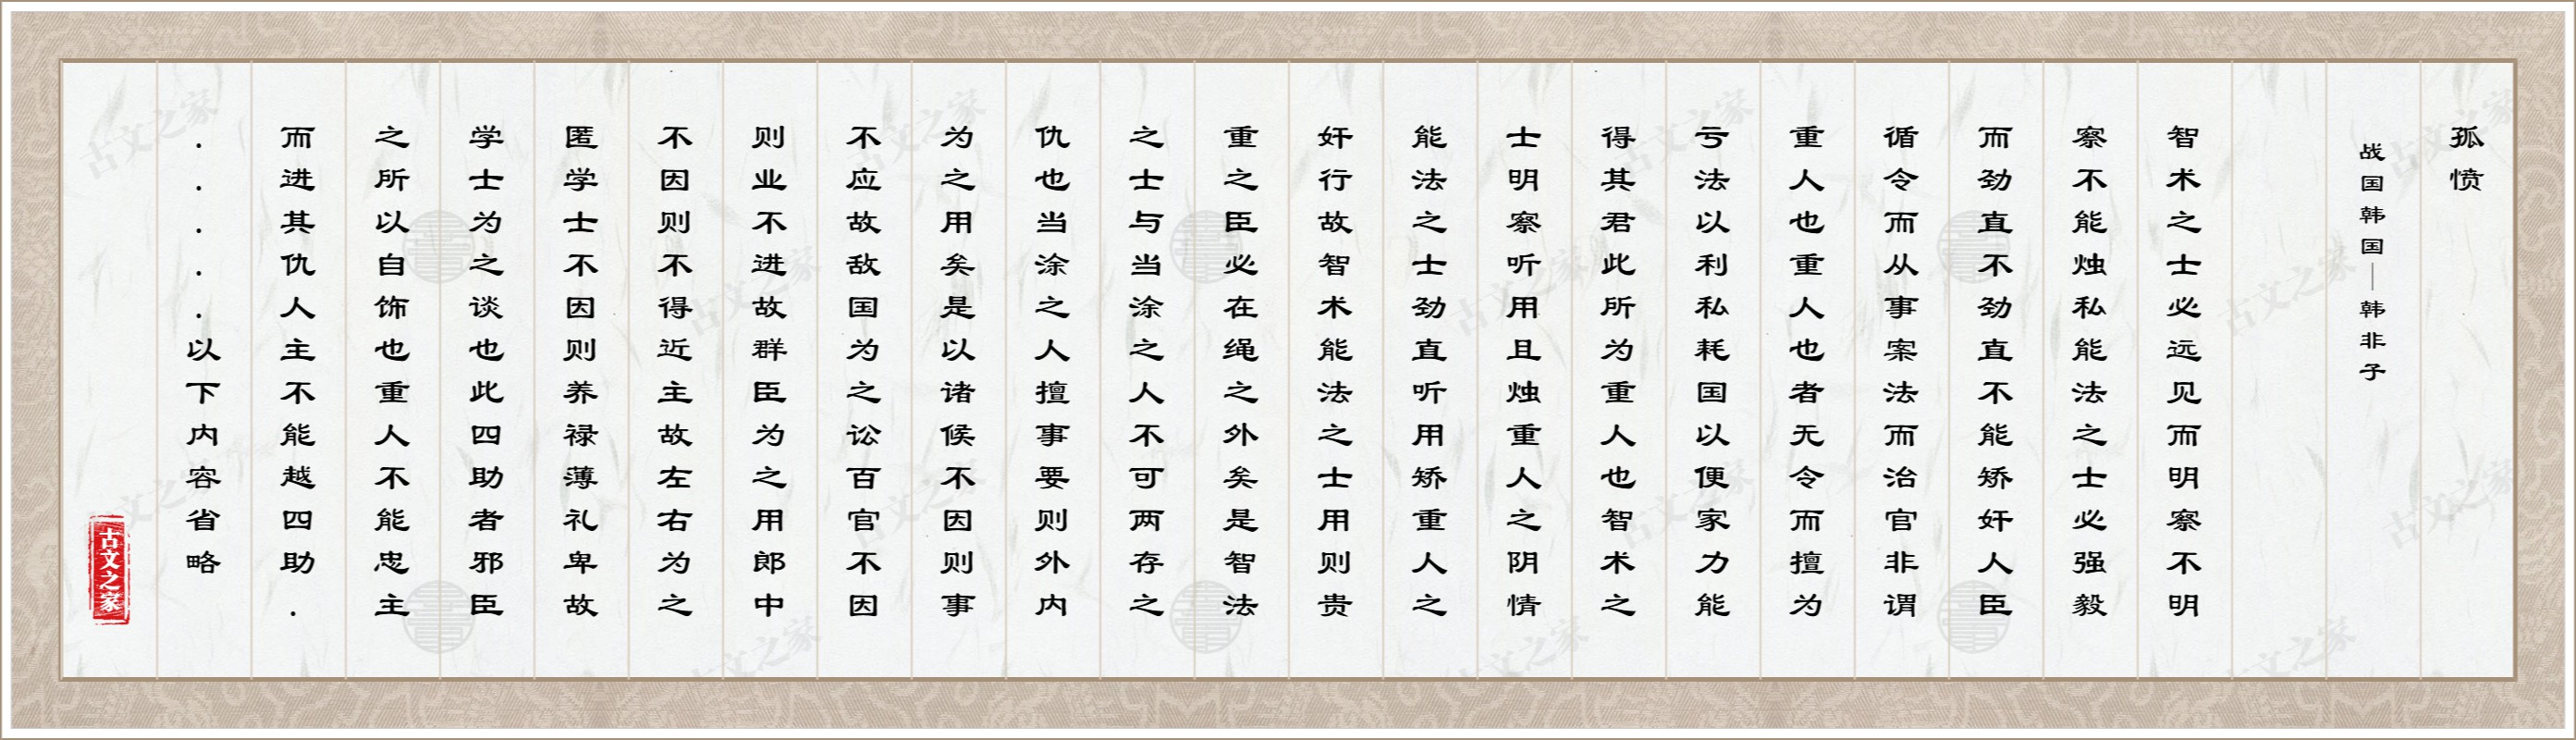 孤愤
战国韩国—韩非子
智术之士必远见而明察不明
察不能烛私能法之士必强毅
而劲直不劲直不能矫奸人臣
循令而从事案法而治官非谓
重人也重人也者无令而擅为
亏法以利私耗国以便家力能
得其君此所为重人也智术之
士明察听用且烛重人之阴情
能法之士劲直听用矫重人之
奸行故智术能法之士用则贵
重之臣必在绳之外矣是智法
之士与当涂之人不可两存之
仇也当涂之人擅事要则外内
为之用矣是以诸候不因则事
不应故敌国为之讼百官不因
则业不进故群臣为之用郎中
不因则不得近主故左右为之
匿学士不因则养禄薄礼卑故
学士为之谈也此四助者邪臣
之所以自饰也重人不能忠主
而进其仇人主不能越四助.
.....以下内容省略
古文之家